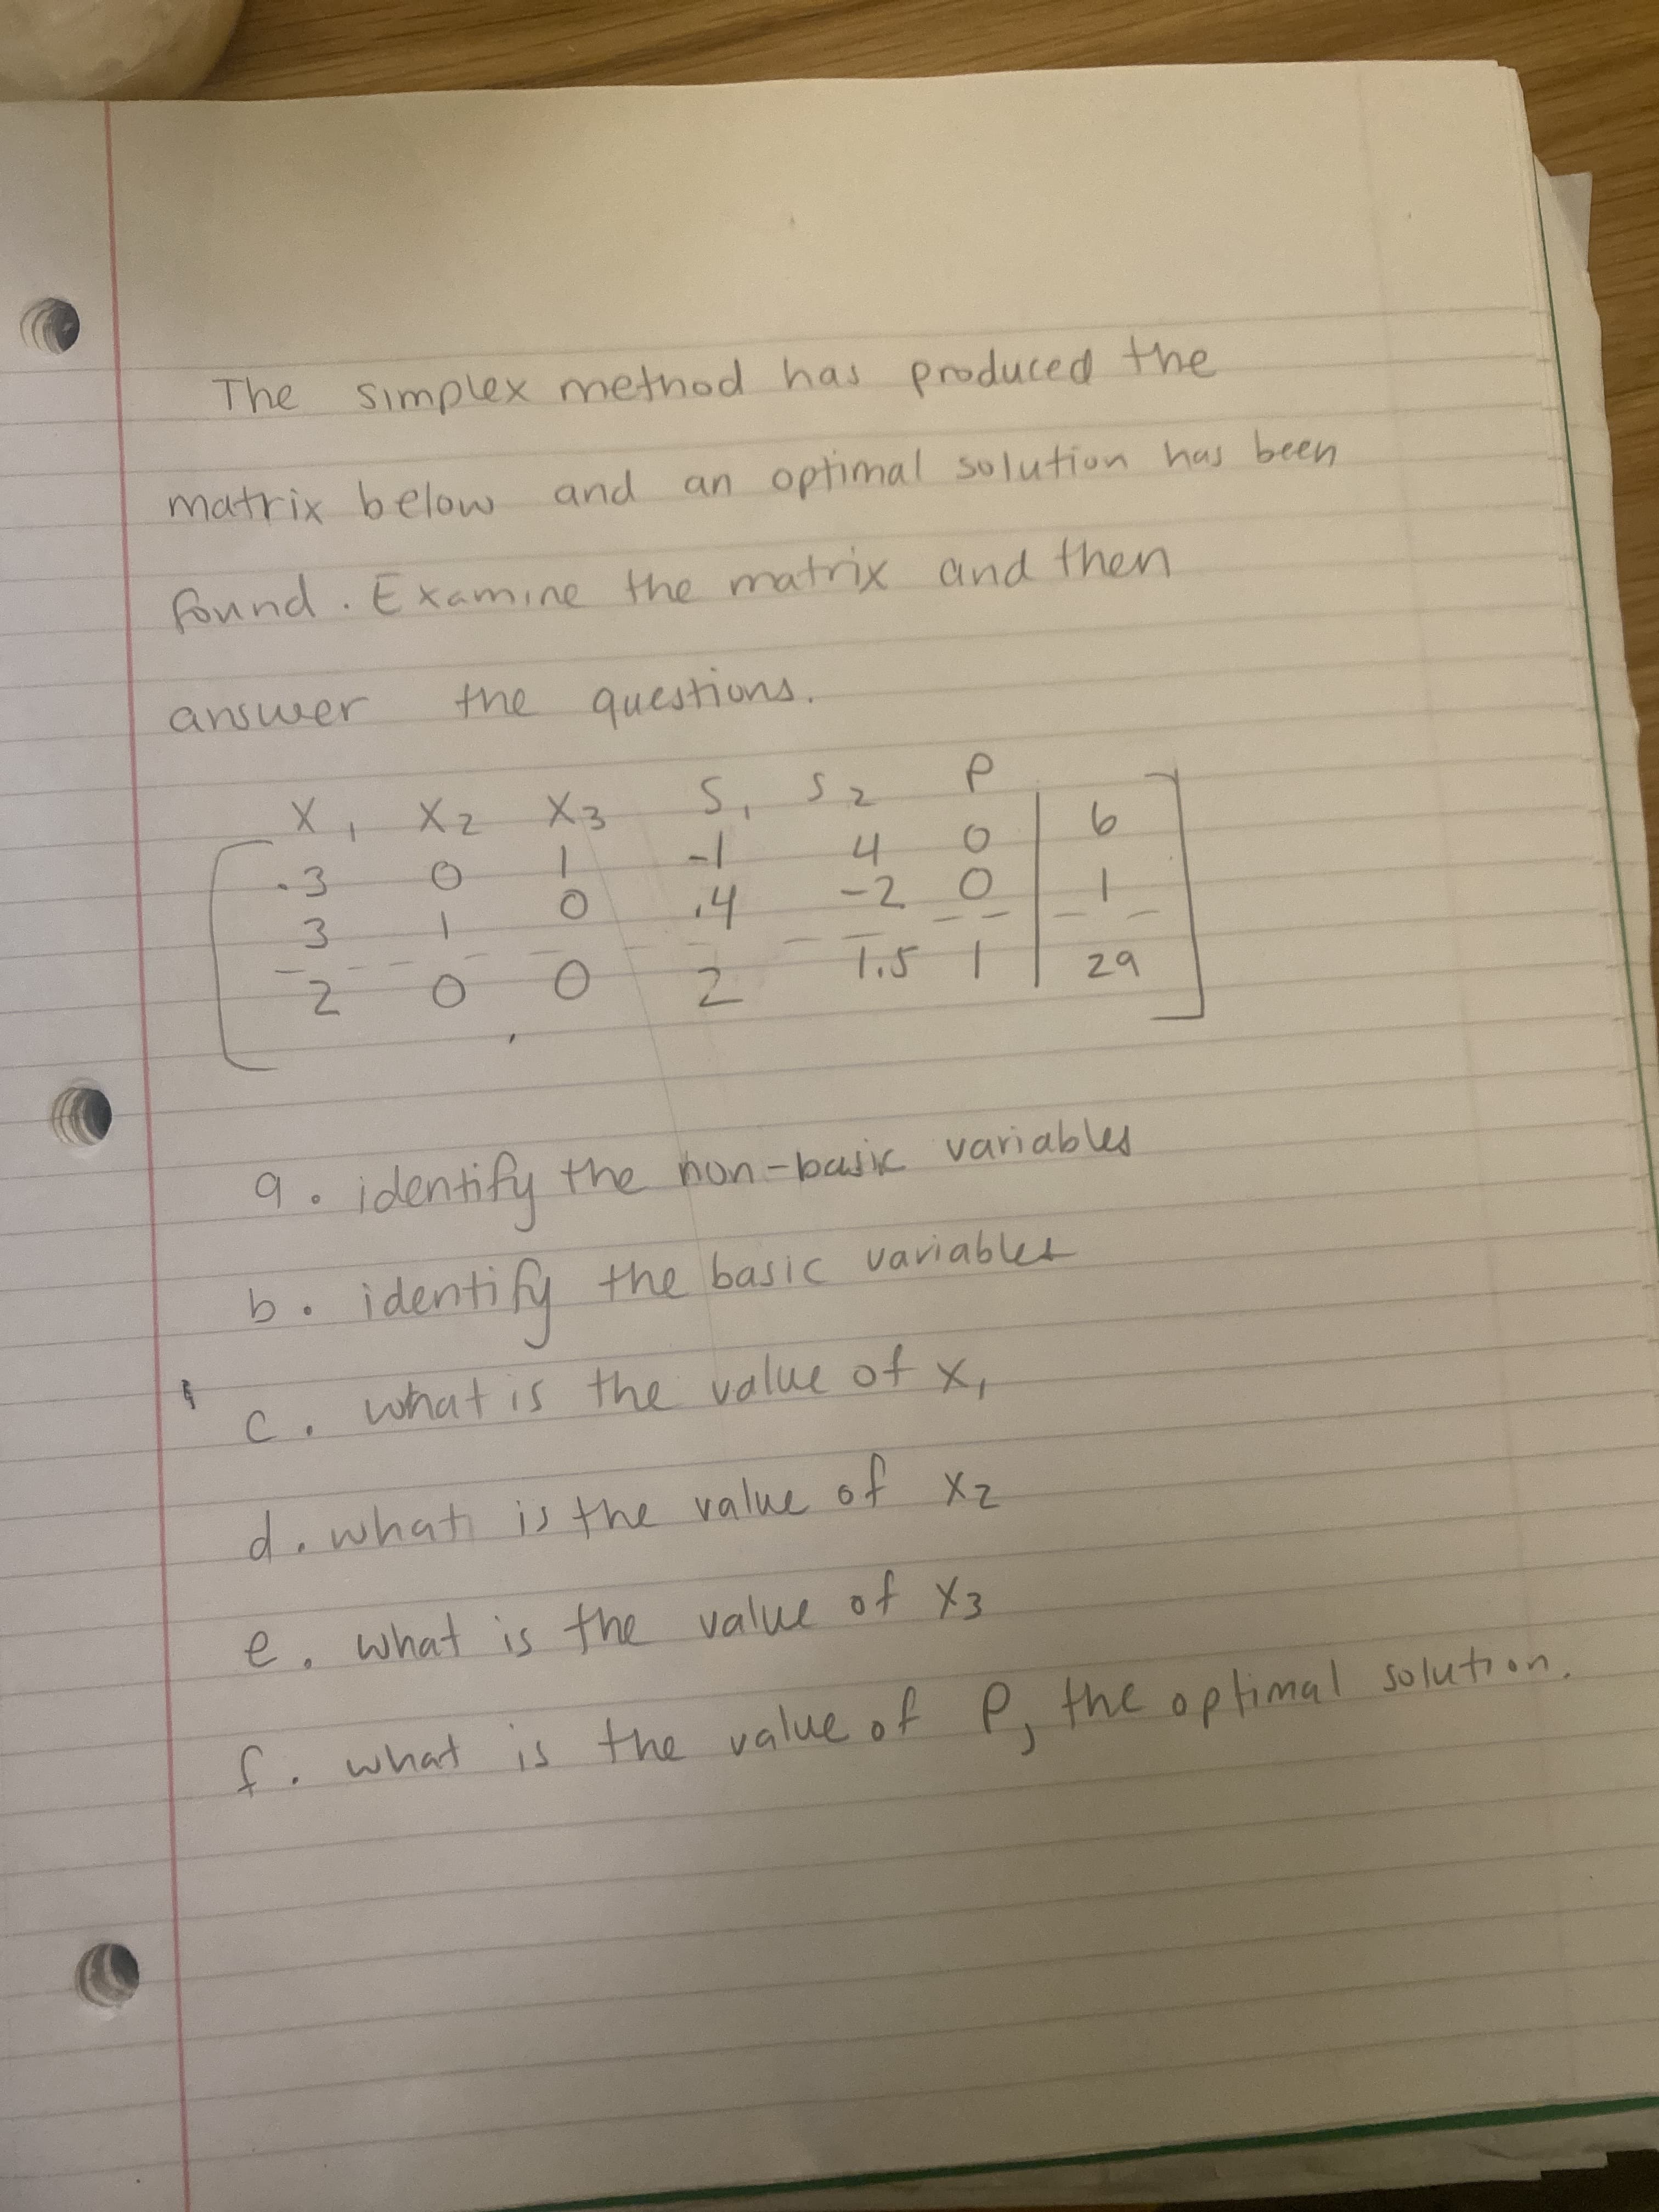 The simplex method has produced the
matrix below and an optimal solution has been
found. Examine the matrix and then
answer the questions.
X1 X2 X3 S1 S2 P
.3 0 1 -1 4 0 | 6
3 1 0 .4 -2 0 | 1
2 0 0 2 1.5 1 | 29
a. identify the non-basic variables
b. identify the basic variables
c. what is the value of x1
d. what is the value of x2
e. what is the value of x3
f. what is the value of P, the optimal solution.